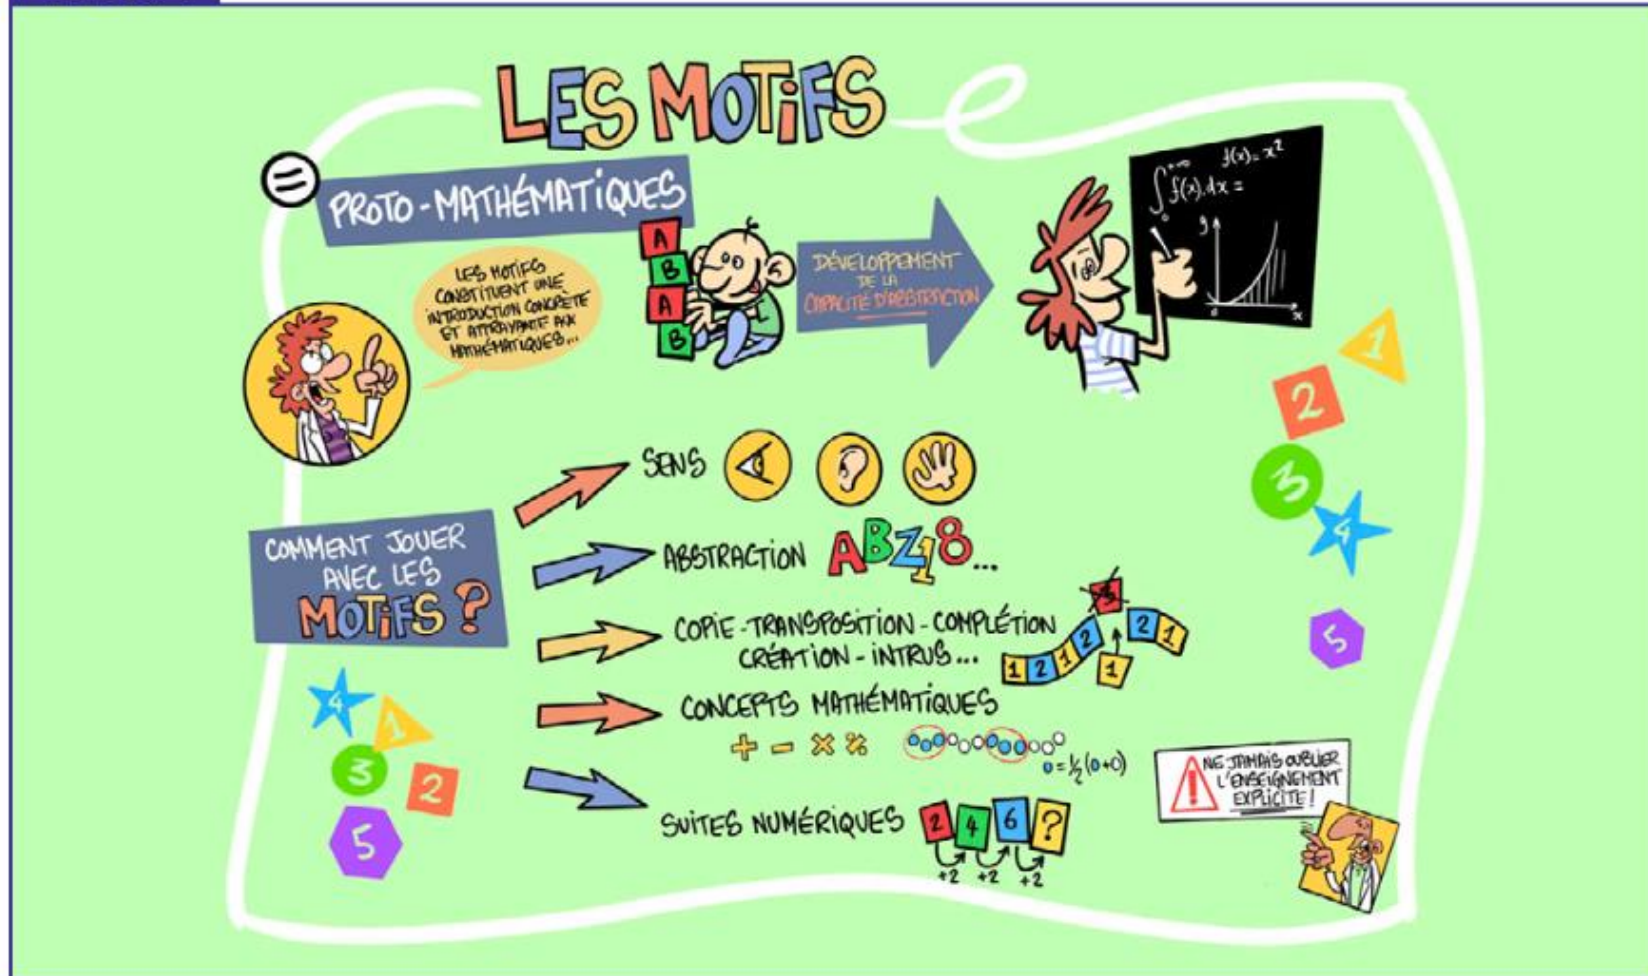 LES MOTIFS
=
PROTO-MATHÉMATIQUES
LES MOTIFS
CONSTITUENT UNE
INTRODUCTION CONCRÈTE
ET ATTRAYANTE AUX
MATHÉMATIQUES...
A
B
A
B
DÉVELOPPEMENT
DE LA
CAPACITÉ D'ABSTRACTION
f(x)=x²
∫₀⁺∞ f(x).dx =
y
0
x
1
2
3
4
5
COMMENT JOUER
AVEC LES
MOTIFS ?
SENS
ABSTRACTION ABZ18...
COPIE-TRANSPOSITION-COMPLÉTION
CRÉATION-INTRUS...
1 2 1 2
3
2 1
1
CONCEPTS MATHÉMATIQUES
+ - × %
0=½(0+0)
SUITES NUMÉRIQUES 2 4 6 ?
+2 +2 +2
4
1
3
2
5
NE JAMAIS OUBLIER
L'ENSEIGNEMENT
EXPLICITE !